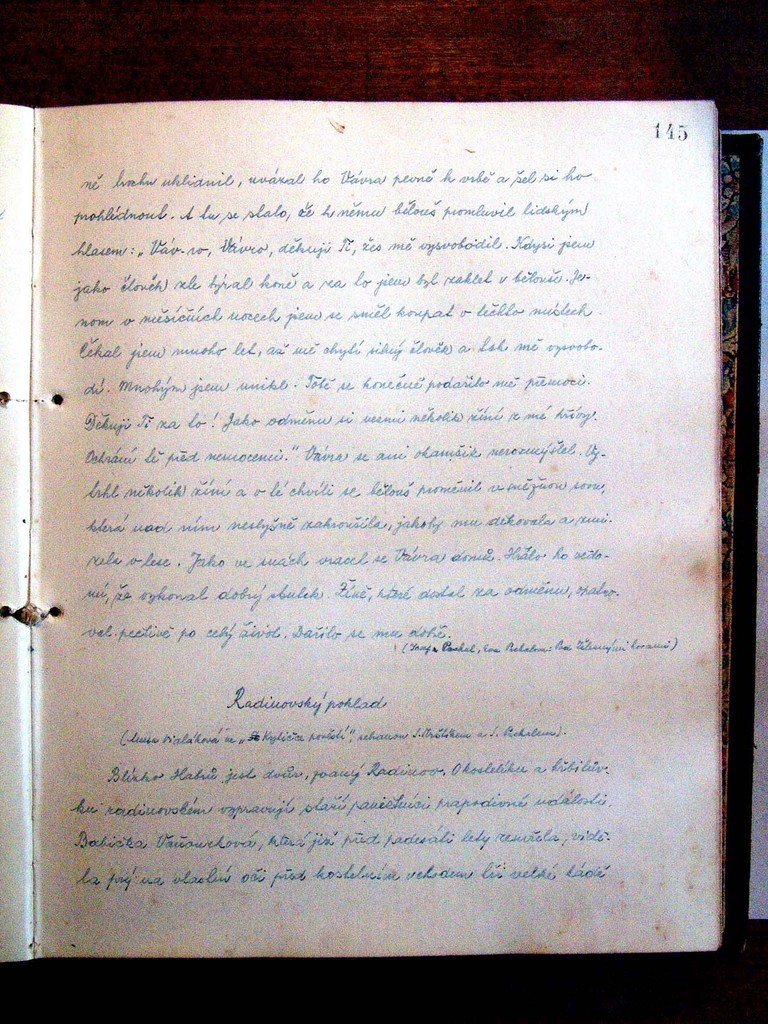 145
ně trochu uklidnil, uvázal ho Vávra pevně k vrbě a šel si ho
prohlédnout. A tu se stalo, že k němu bělouš promluvil lidským
hlasem: „Vávro, Vávro, děkuji Ti, žes mě vysvobodil. Kdysi jsem
jako člověk zle týral koně a za to jsem byl zaklet v bělouše. Je-
nom v měsíčních nocech jsem se směl koupat v těchto místech
Čekal jsem mnoho let, až mě chytí silný člověk a tak mě vysvobo-
dí. Mnohým jsem unikl. Tobě se konečně podařilo mě přemoci.
Děkuji Ti za to! Jako odměnu si vezmi několik žíní z mé hřívy.
Ochrání tě před nemocemi." Vávra se ani okamžik nerozmýšlel. Vy-
trhl několik žíní a v té chvíli se bělouš proměnil v sněžnou sovu,
která nad ním neslyšně zakroužila, jakoby mu děkovala a zmi-
zela v lese. Jako ve snách vracel se Vávra domů. Hřálo ho vědo-
mí, že vykonal dobrý skutek. Žíně, které dostal za odměnu, opatro-
val pečlivě po celý život. Dařilo se mu dobře.
(Josef Pachel, Eva : Pod Železnými horami)
Radinovský poklad
( ve „Kytičce pověstí", sebranou a J. Pachelem).
Blízko Habrů jest dvůr, zvaný Radinov. O kostelíku a hřbitův-
ku radinovském vypravují staří pamětníci prapodivné události.
Babička, která již před padesáti lety zemřela, vidě-
la prý na vlastní oči před kostelním vchodem tři veliké kádě